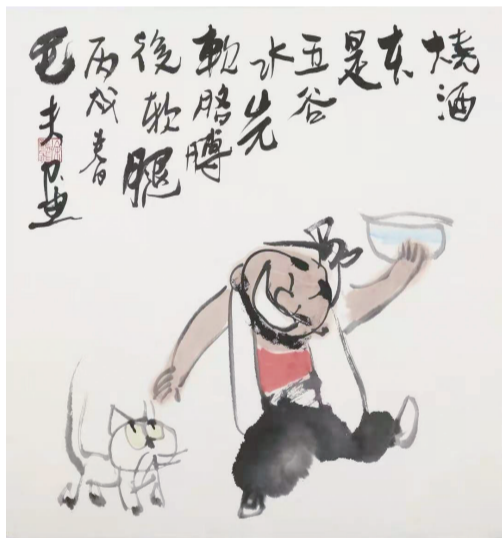 燒酒
本
是
五谷
水先
軟胳膊
後軟腿
丙戌春
夫画